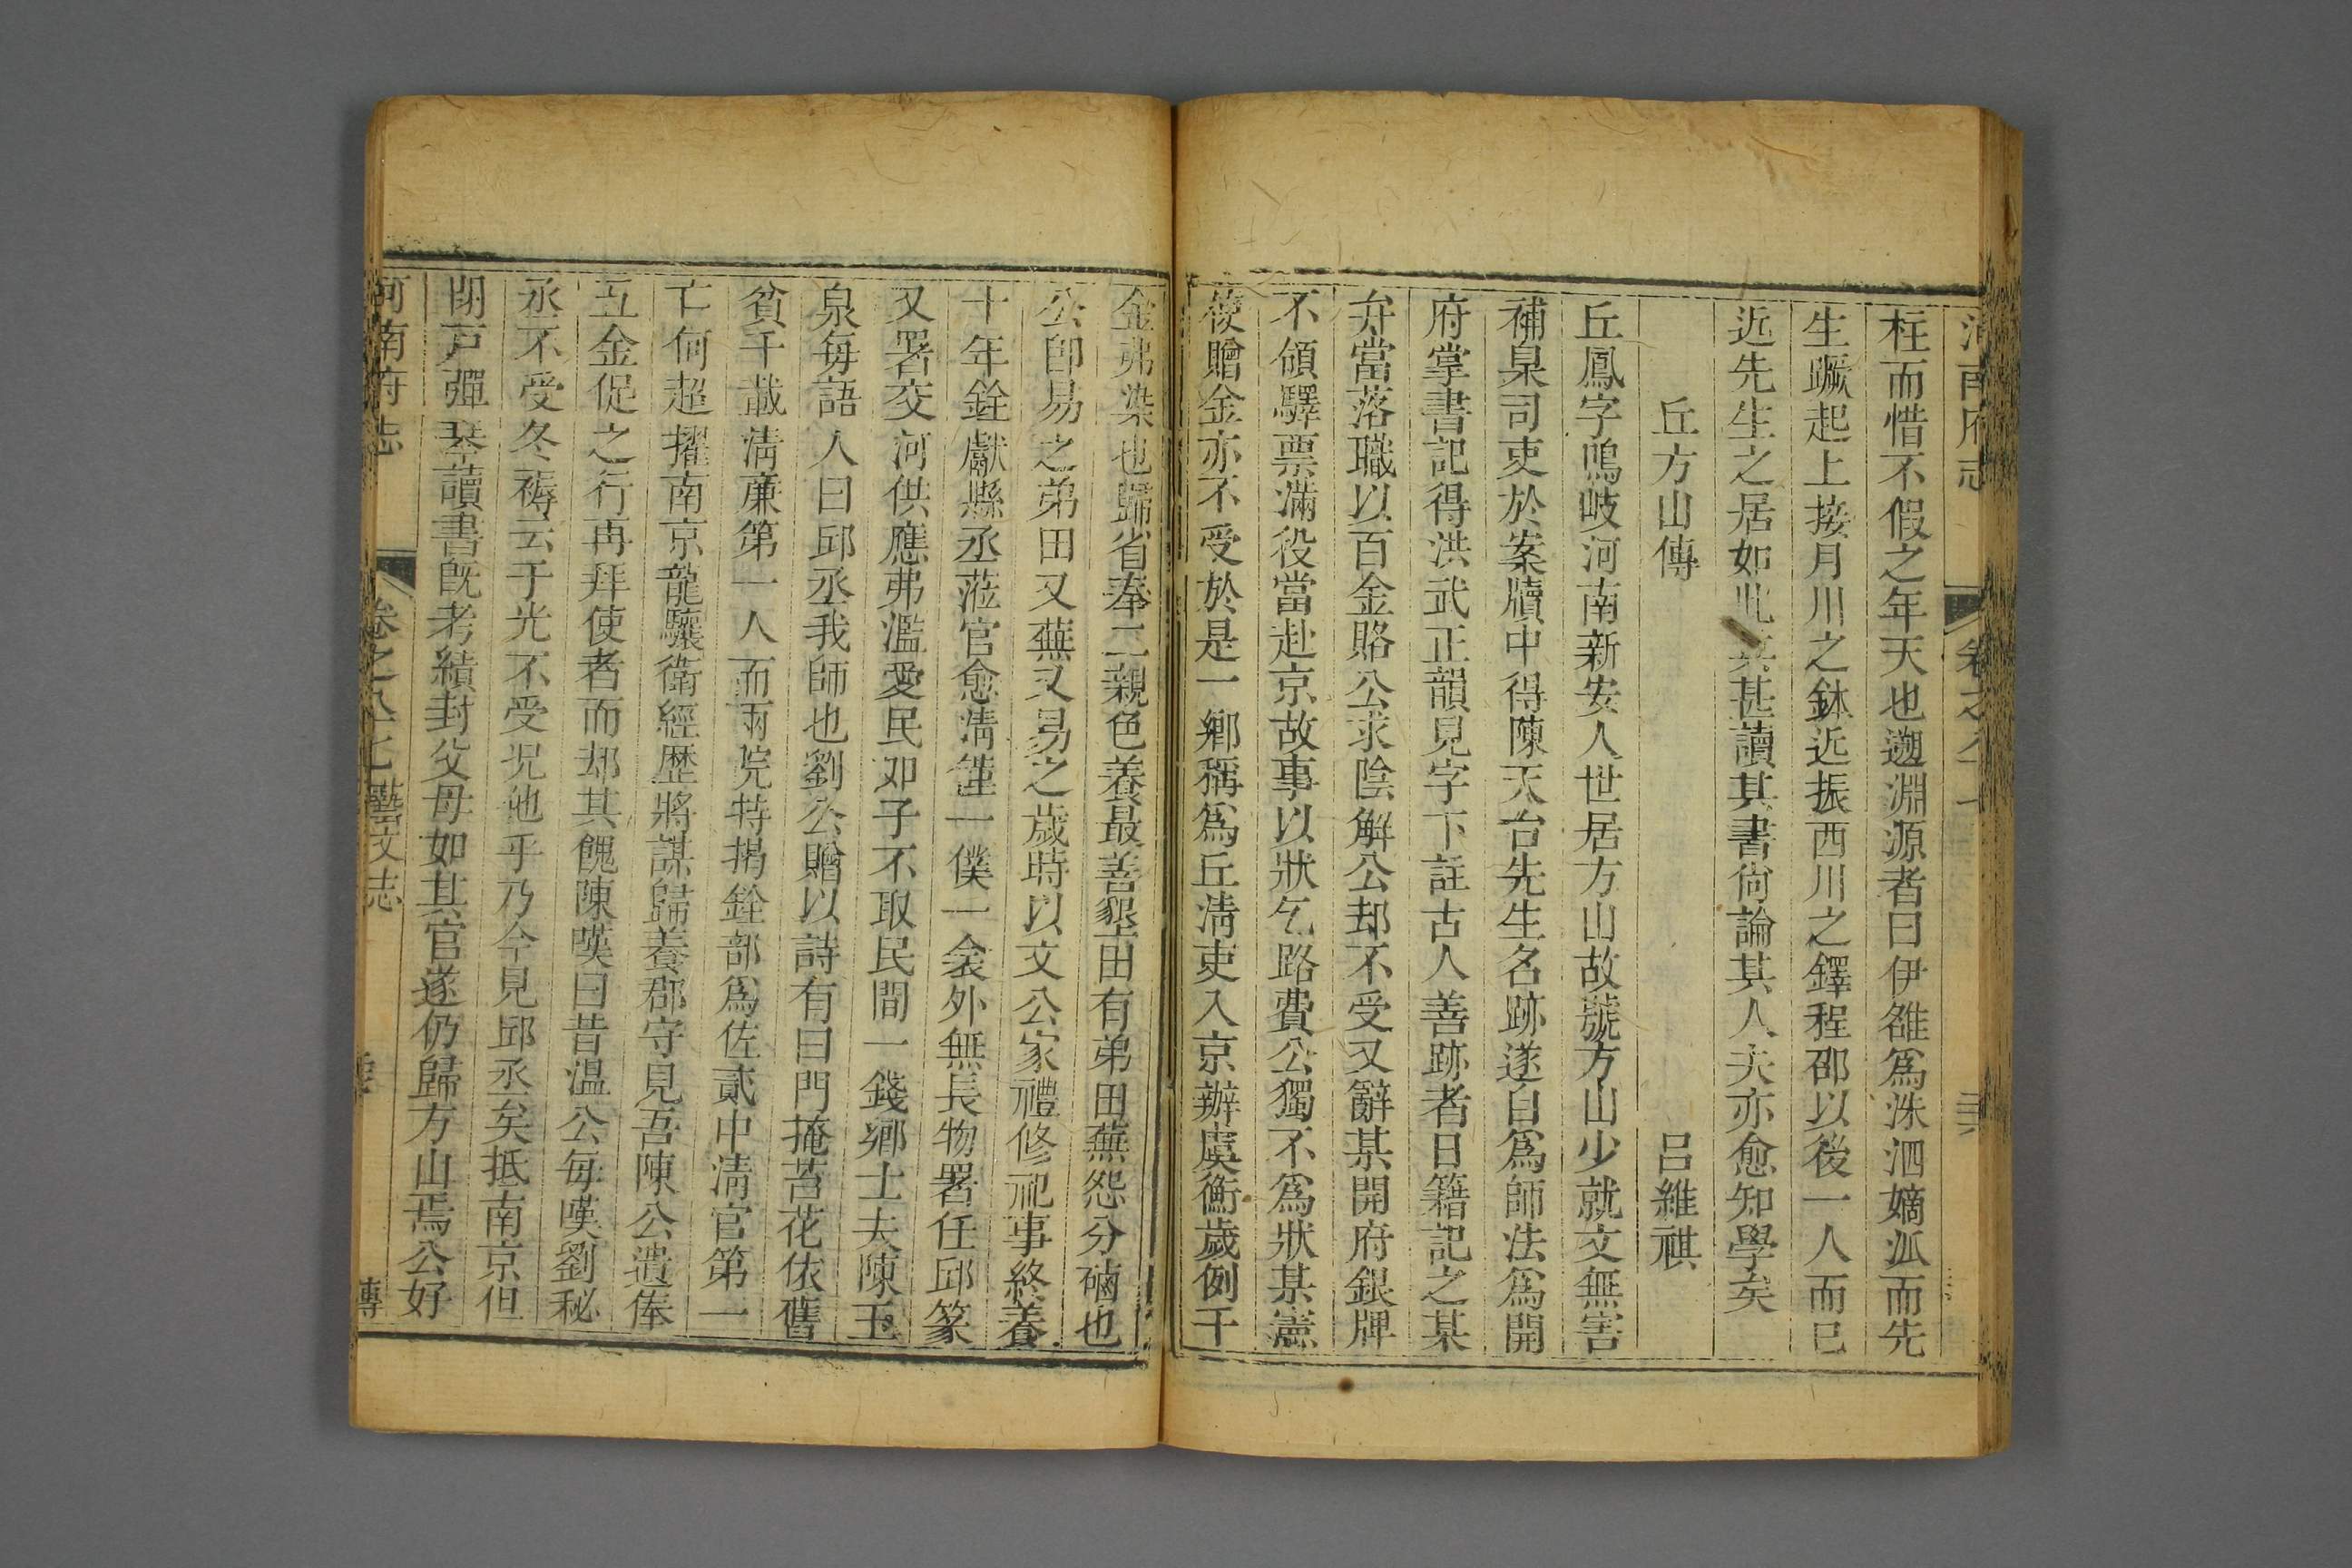 河南府志 卷之八十
柱而惜不假之年天也遡淵源者曰伊雒爲洙泗嫡派而先
生蹶起上接月川之鉢近振西川之鐸程邵以後一人而已
近先生之居如此其甚讀其書尙論其人夫亦愈知學矣
丘方山傳 呂維祺
丘鳳字鳴岐河南新安人世居方山故號方山少就文無害
補臬司吏於案牘中得陳天台先生名跡遂自爲師法爲開
府掌書記得洪武正韻見字下註古人善跡者日籍記之某
弁當落職以百金賂公求陰解公却不受又辭某開府銀牌
不領驛票滿役當赴京故事以狀乞路費公獨不爲狀某憲
檄贈金亦不受於是一鄉稱爲丘淸吏入京辦虞衡歲例千
金弗染也歸省奉二親色養最善墾田有弟田蕪怨分磽也
公卽易之弟田又蕪又易之歲時以文公家禮修祀事終養
十年銓獻縣丞蒞官愈淸僅一僕一衾外無長物署任邱篆
又署交河供應弗濫愛民如子不取民間一錢鄉士夫陳玉
泉每語人曰邱丞我師也劉公贈以詩有曰門掩苔花依舊
貧千載淸廉第一人而兩院特揭銓部爲佐貳中淸官第一
亡何超擢南京龍驤衛經歷將謀歸養郡守見吾陳公遣俸
五金促之行再拜使者而却其餽陳嘆曰昔溫公每嘆劉秘
丞不受冬褥云于光不受况他乎乃今見邱丞矣抵南京但
閉戸彈琴讀書旣考績封父母如其官遂仍歸方山焉公好
河南府志 卷之八十七 藝文志 傳